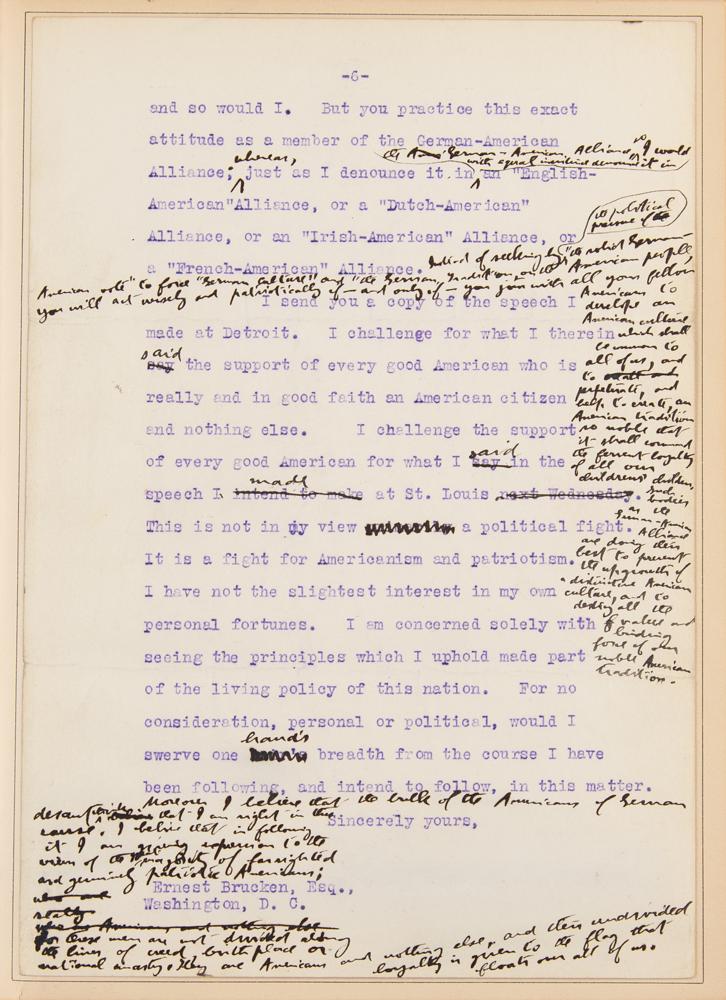 -6-
and so would I. But you practice this exact
attitude as a member of the German-American
the German-American Alliance, I would
with equal denounce it in
whereas,
Alliance; just as I denounce it in an "English-
American" Alliance, or a "Dutch-American"
Alliance, or an "Irish-American" Alliance, or
a "French-American" Alliance.
Instead of seeking by
its political
pressure of the
"the solid German-
American vote" to force "German culture" and "the German tradition" on the American people,
you will act wisely and patriotically if — and only if — you join with all your fellow
Americans to
develope an
American culture
which shall
be common to
all of us, and
to
perpetuate, and
help to create, an
American tradition
so noble that
it shall command
the fervent loyalty
of all our
childrens' children.
Such
bodies
as the
German-American
Alliance
are doing their
best to prevent
the upgrowth of
a distinctive American
culture, and to
destroy all the
value and
binding
force of our
noble American
tradition.
I send you a copy of the speech I
made at Detroit. I challenge for what I therein
said
say the support of every good American who is
really and in good faith an American citizen
and nothing else. I challenge the support
said
of every good American for what I say in the
made
speech I intend to make at St. Louis next Wednesday.
This is not in my view a political fight.
It is a fight for Americanism and patriotism.
I have not the slightest interest in my own
personal fortunes. I am concerned solely with
seeing the principles which I uphold made part
of the living policy of this nation. For no
consideration, personal or political, would I
hand's
swerve one breadth from the course I have
been following, and intend to follow, in this matter.
Moreover I believe that the bulk of the Americans of German
descent that I am right in this
course. I believe that in following
it I am giving expression to the
views of the majority of farsighted
and genuinely patriotic Americans;
who are
really
who is American and nothing else
for these men are not divided along
the lines of creed, birthplace or
national ancestry. They are Americans and nothing else, and their undivided
loyalty is given to the flag that
floats over all of us.
Sincerely yours,
Ernest Brucken, Esq.,
Washington, D. C.